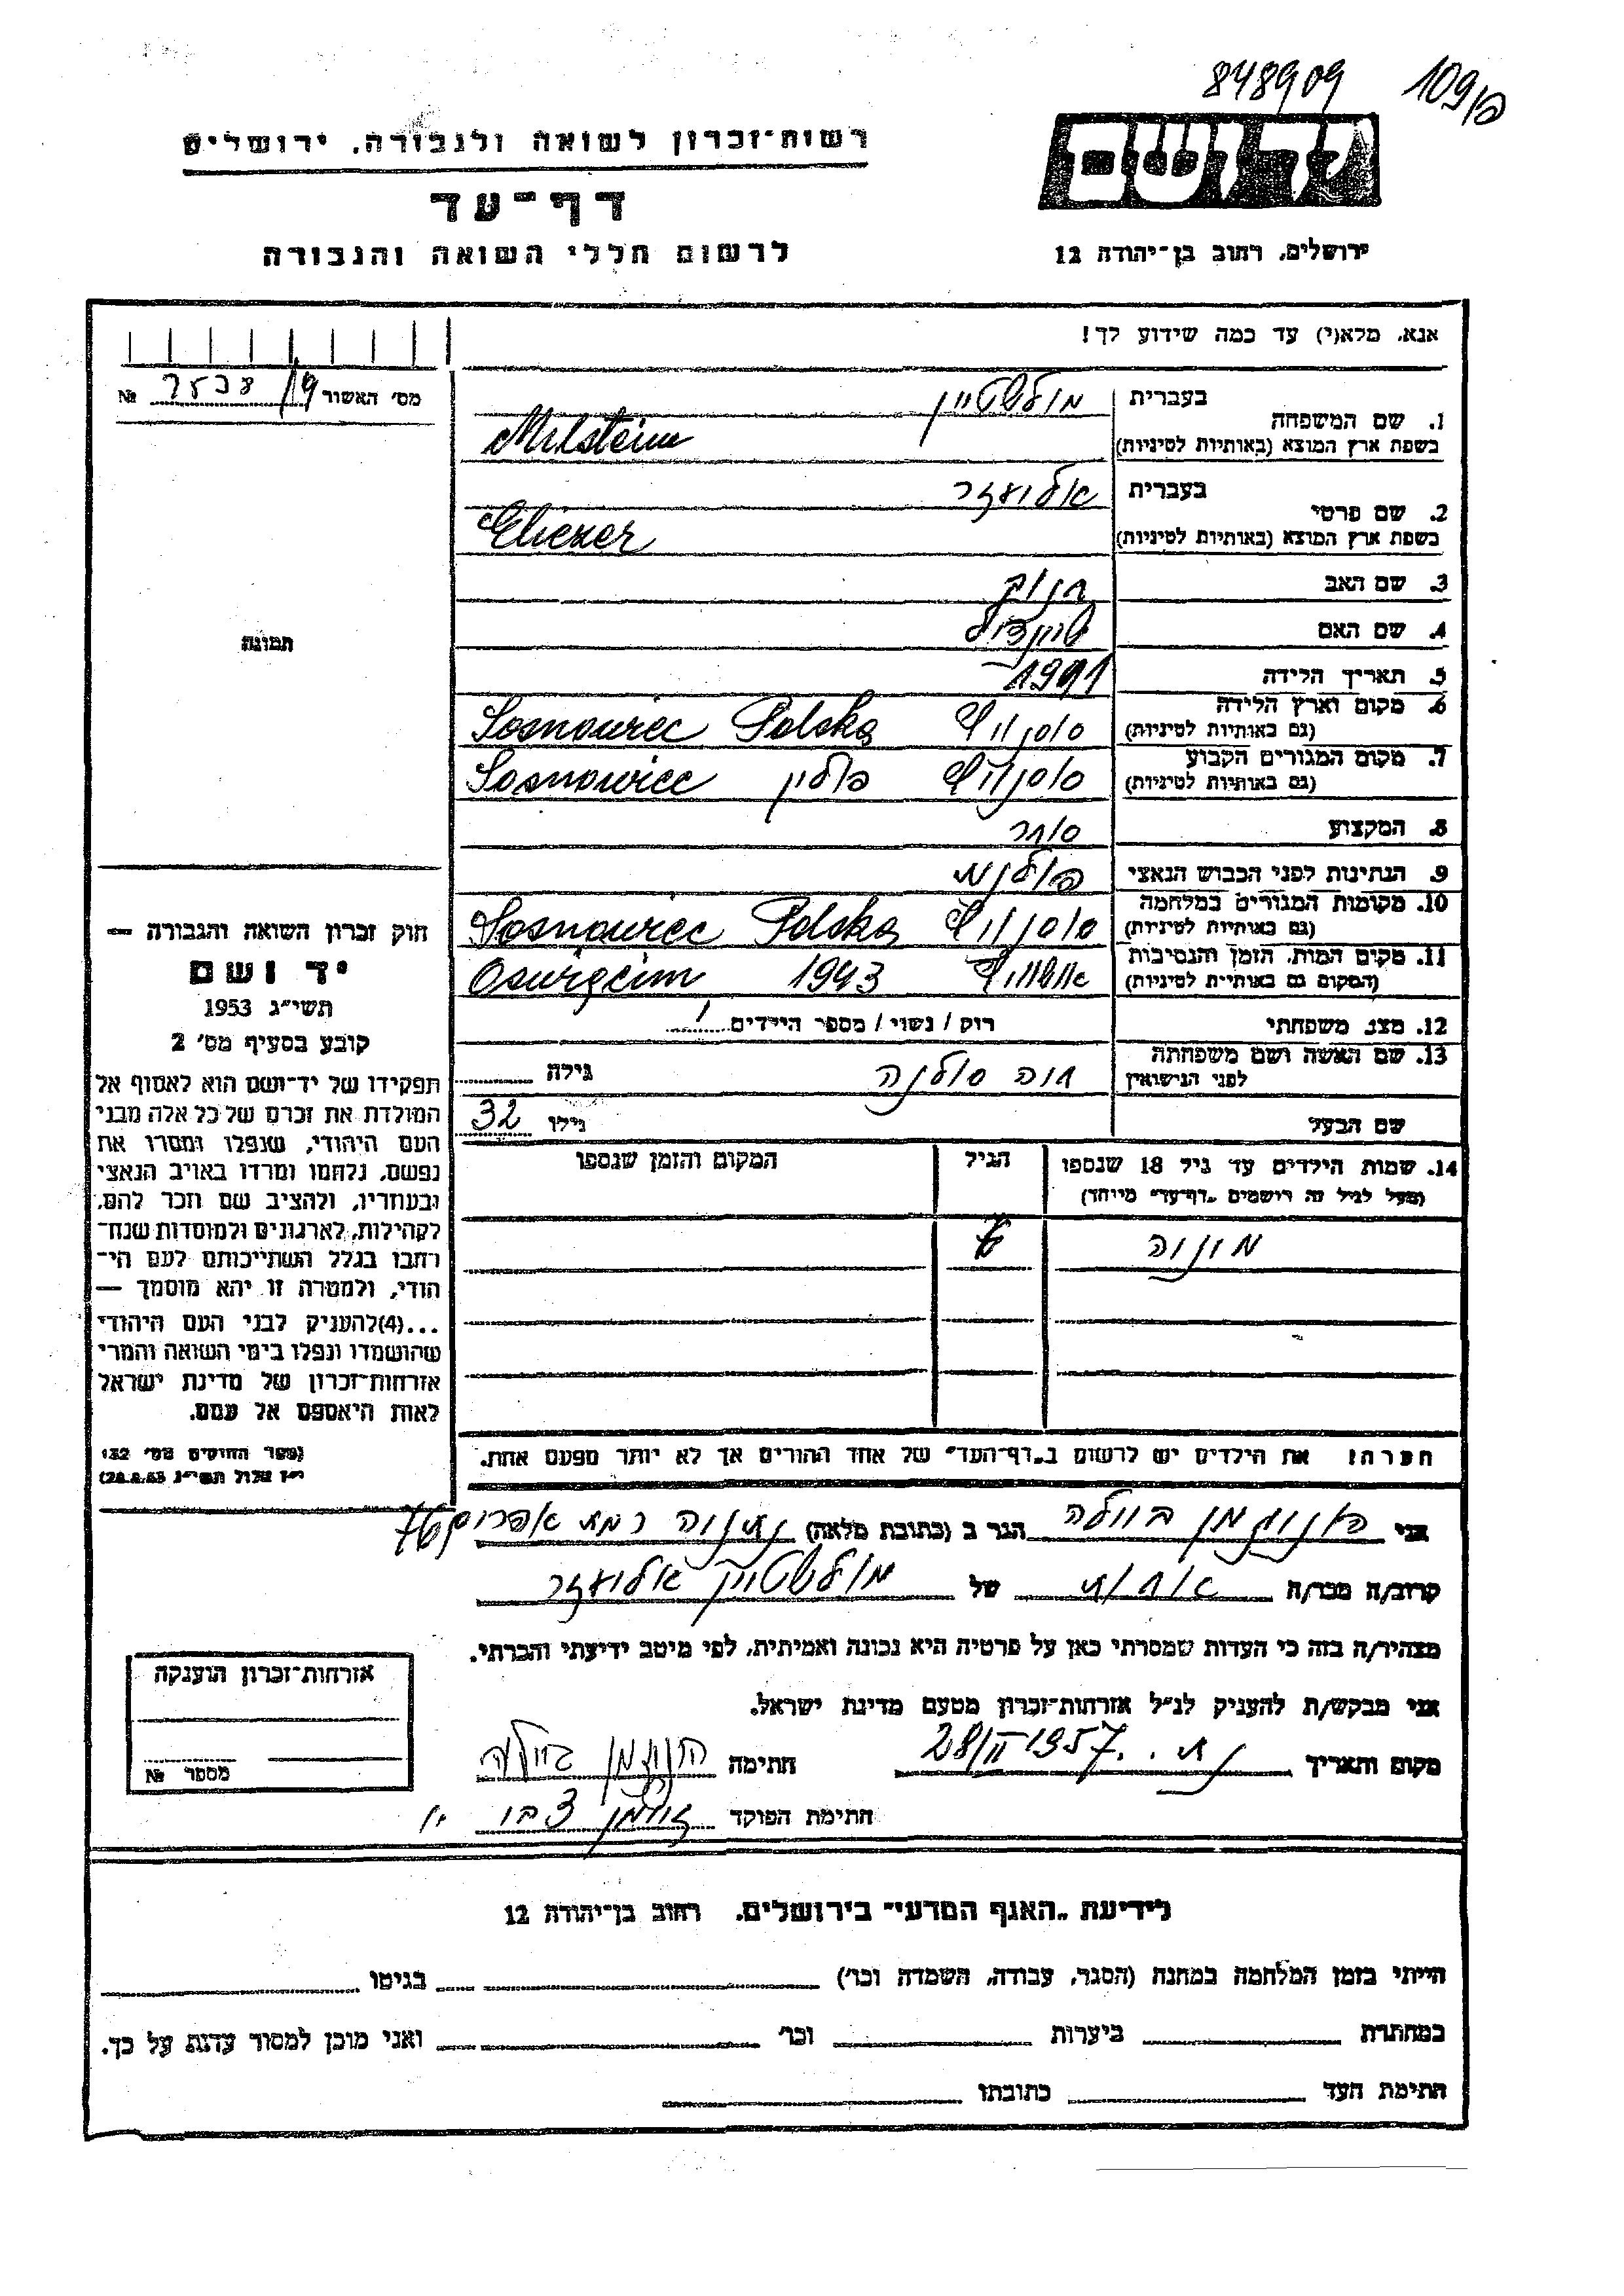 848909 109/פ
יד ושם
ירושלים, רחוב בן־יהודה 12
רשות־זכרון לשואה ולגבורה, ירושלים
דף־עד
לרשום חללי השואה והגבורה
אנא, מלא(י) עד כמה שידוע לך!
מס' האשור №
תמונה
1. שם המשפחה בעברית מילשטיין
בשפת ארץ המוצא (באותיות לטיניות) Milstein
2. שם פרטי בעברית אליעזר
בשפת ארץ המוצא (באותיות לטיניות) Eliezer
3. שם האב חנוך
4. שם האם שיינדיל
5. תאריך הלידה
6. מקום וארץ הלידה (גם באותיות לטיניות) סוסנוויץ Sosnowiec Polska
7. מקום המגורים הקבוע (גם באותיות לטיניות) סוסנוויץ פולין Sosnowiec
8. המקצוע סוחר
9. הנתינות לפני הכבוש הנאצי פולנית
10. מקומות המגורים במלחמה (גם באותיות לטיניות) סוסנוויץ Sosnowiec Polska
11. מקום המות, הזמן והנסיבות (המקום גם באותיות לטיניות) אושוויץ 1943 Oswięcim
12. מצב משפחתי רוק / נשוי / מספר הילדים 1
13. שם האשה ושם משפחתה לפני הנישואין חוה גילה
שם הבעל גילו 32
14. שמות הילדים עד גיל 18 שנספו הגיל המקום והזמן שנספו
(מעל לגיל זה רושמים "דף־עד" מיוחד)
הערה! את הילדים יש לרשום ב"דף־העד" של אחד ההורים אך לא יותר מפעם אחת.
חוק זכרון השואה והגבורה —
יד ושם
תשי"ג 1953
קובע בסעיף מס' 2
תפקידו של יד־ושם הוא לאסוף אל
המולדת את זכרם של כל אלה מבני
העם היהודי, שנפלו ומסרו את
נפשם, נלחמו ומרדו באויב הנאצי
ובעוזריו, ולהציב שם וזכר להם,
לקהילות, לארגונים ולמוסדות שנח־
רבו בגלל השתייכותם לעם הי־
הודי, ולמטרה זו יהא מוסמך —
...(4) להעניק לבני העם היהודי
שהושמדו ונפלו בימי השואה והמרי
אזרחות־זכרון של מדינת ישראל
לאות היאספם אל עמם.
(ספר החוקים מס' 132
י"ז אלול תשי"ג 28.8.53)
אני ביילה הגר ב (כתובת מלאה) נתניה רמת אפרים
קרוב/ה מכר/ה אחות של מילשטיין אליעזר
מצהיר/ה בזה כי העדות שמסרתי כאן על פרטיה היא נכונה ואמיתית, לפי מיטב ידיעתי והכרתי.
אני מבקש/ת להעניק לנ"ל אזרחות־זכרון מטעם מדינת ישראל.
מקום ותאריך 28/II 1957 חתימה ביילה
חתימת הפוקד
אזרחות־זכרון הוענקה
מספר №
לידיעת "האגף המדעי" בירושלים, רחוב בן־יהודה 12
הייתי בזמן המלחמה במחנה (הסגר, עבודה, השמדה וכו') בגיטו
במחתרת ביערות וכו' ואני מוכן למסור עדות על כך.
חתימת העד כתובתו